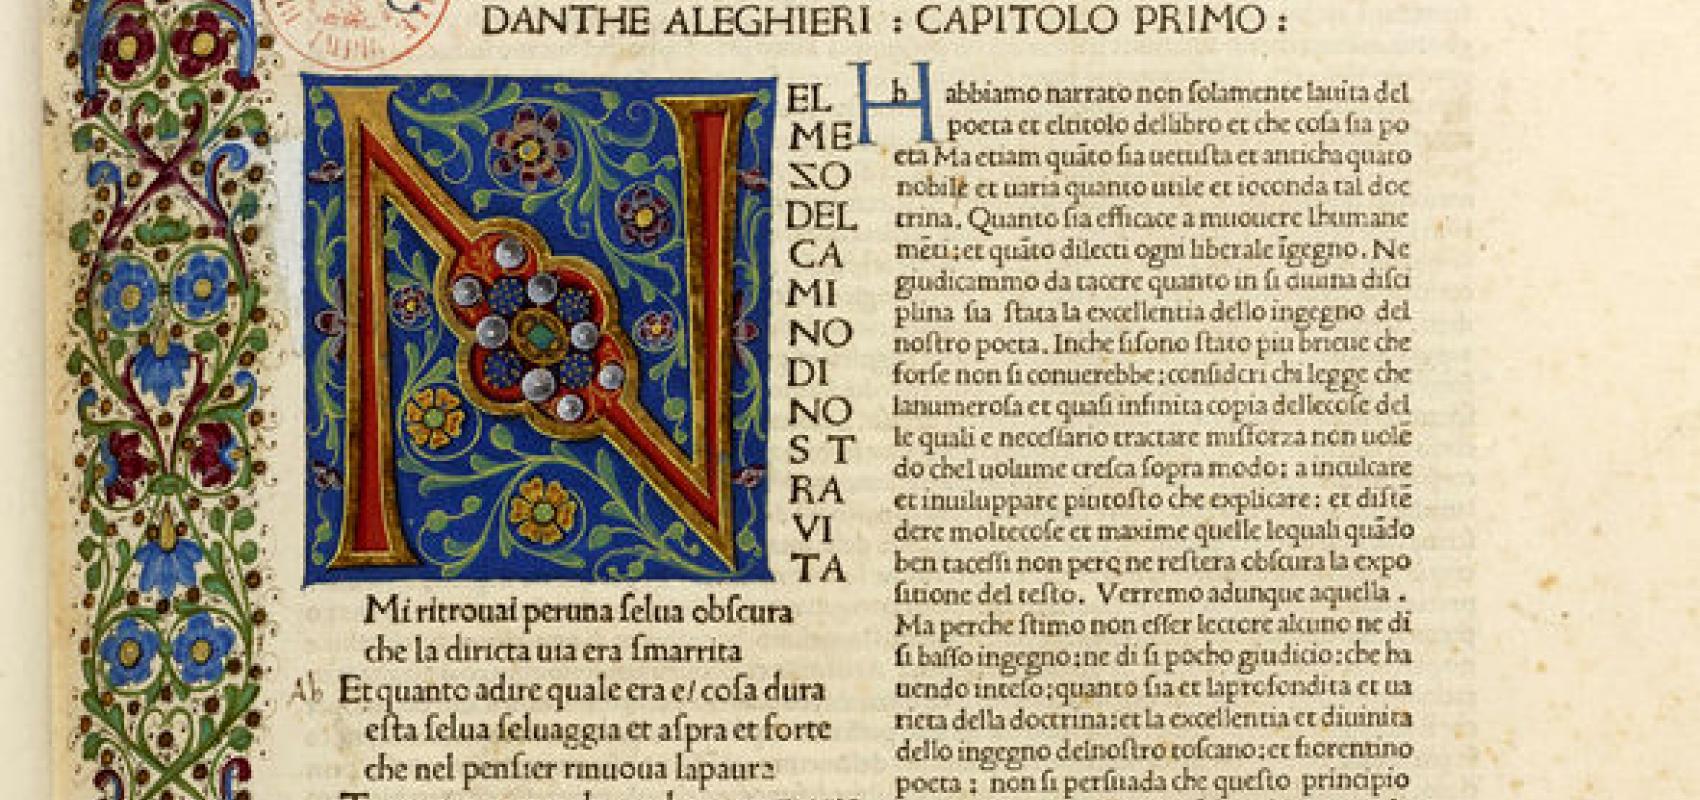 DANTHE ALEGHIERI : CAPITOLO PRIMO :
N
EL
ME
ZO
DEL
CA
MI
NO
DI
NO
S T
RA
VI
TA
Mi ritrouai peruna ſelua obſcura
che la diricta uia era ſmarrita
Ab Et quanto adire quale era e/ coſa dura
eſta ſelua ſeluaggia et aſpra et forte
che nel penſier rinuoua lapaura
H h abbiamo narrato non ſolamente lauita del
poeta et eltitolo dellibro et che coſa ſia po
eta Ma etiam quāto ſia uetuſta et anticha quato
nobile et uaria quanto utile et ioconda tal doc
trina. Quanto ſia efficace a muouere lhumane
mēti:et quāto dilecti ogni liberale īgegno. Ne
giudicammo da tacere quanto in ſi diuina diſci
plina ſia ſtata la excellentia dello ingegno del
noſtro poeta. Inche ſiſono ſtato piu brieue che
forſe non ſi conuerebbe:conſideri chi legge che
lanumeroſa et quaſi infinita copia dellecoſe del
le quali e neceſſario tractare miſforza non uolē
do chel uolume creſca ſopra modo: a inculcare
et inuiluppare piutoſto che explicare: et diſtē
dere moltecoſe et maxime quelle lequali quādo
ben taceſſi non perq ne reſtera obſcura la expo
ſitione del teſto. Verremo adunque aquella .
Ma perche ſtimo non eſſer lectore alcuno ne di
ſi baſſo ingegno:ne di ſi pocho giudicio:che ha
uendo inteſo:quanto ſia et laprofondita et ua
rieta della doctrina:et la excellentia et diuinita
dello ingegno delnoſtro toſcano:et fiorentino
poeta : non ſi perſuada che queſto principio